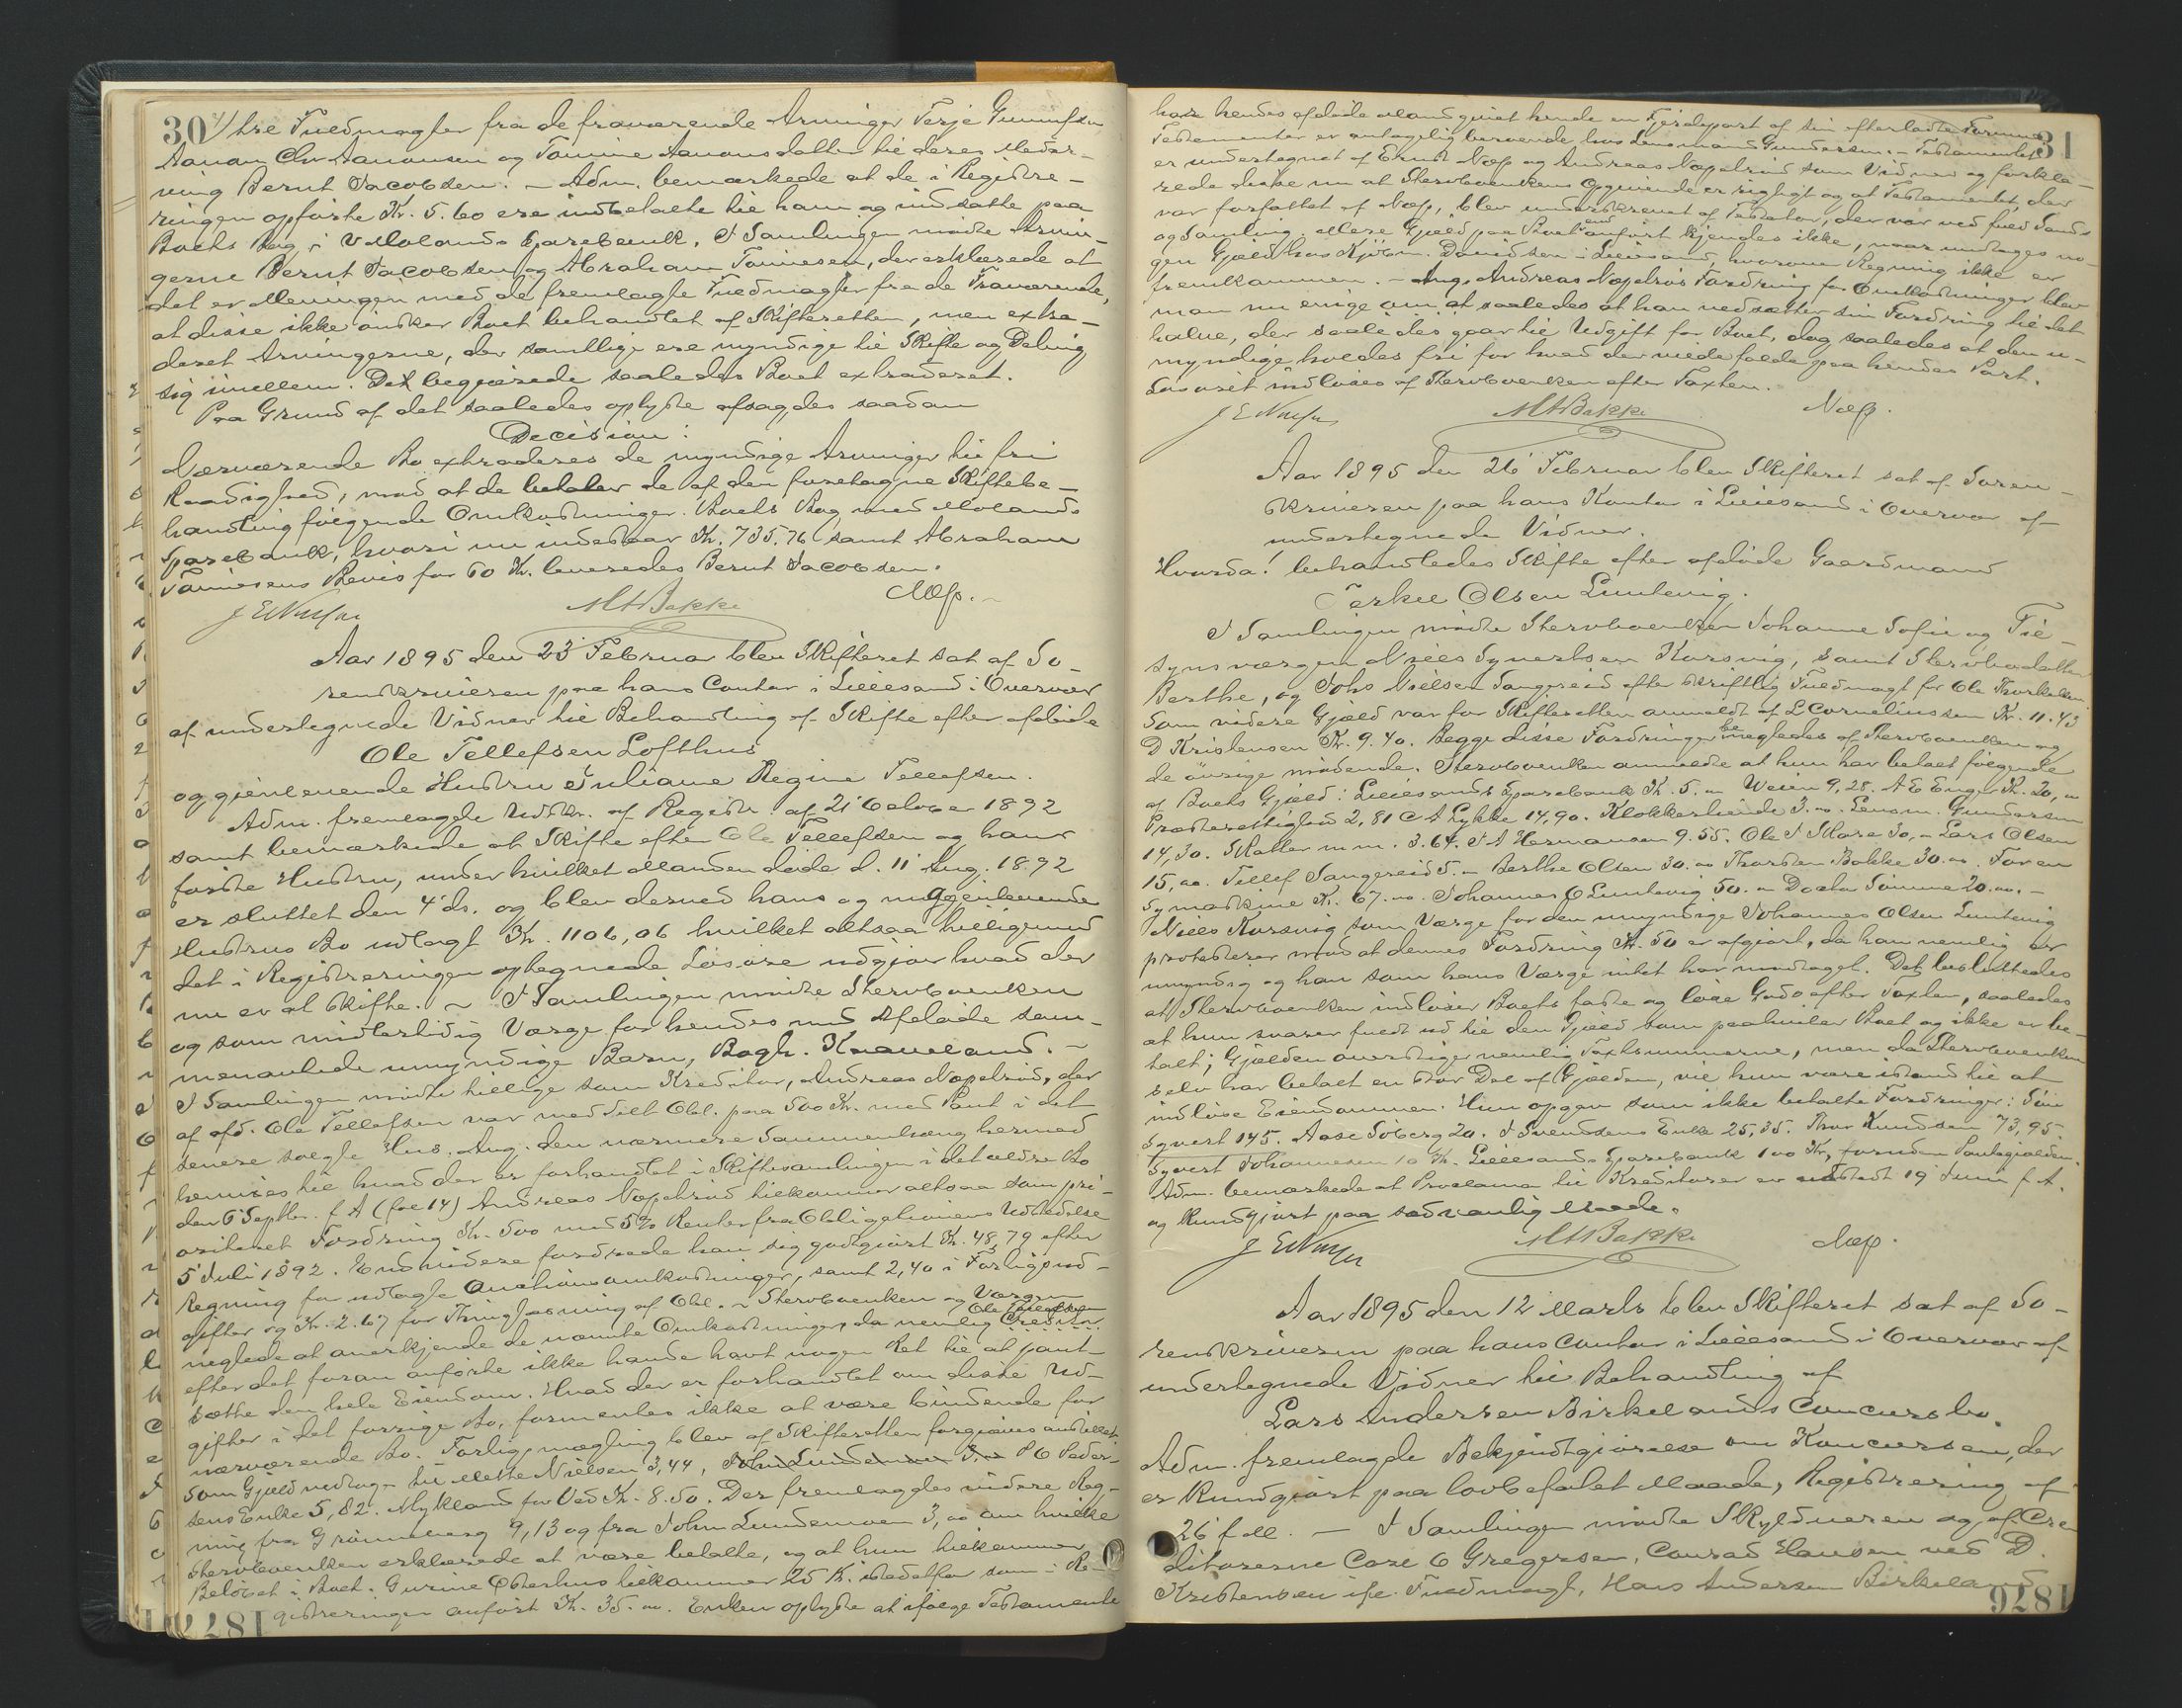 30
tre Fuldmagter fra de fraværende Arvinger Terje Gunnufsen
Aanon Chr Aanonsen og Tomine Aanonsdatter til deres Medar-
ving Bernt Jacobsen. – Adm. bemærkede at de i Registre-
ringen opførte Kr. 5.60 ere indbetalte til ham og indsatte paa
Boets Bog i V. Molands Sparebank. I Samlingen mødte Arvin-
gerne Bernt Jacobsen og Abraham Tønnesen, der erklærede at
det er Meningen med de fremlagte Fuldmagter fra de Fraværende,
at disse ikke ønsker Boet behandlet af Skifteretten, men extra-
deret Arvingerne, der samtlige ere myndige til Skifte og Deling
sig imellem. De begjærede saaledes Boet extraderet.
Paa Grund af det saaledes oplyste afsagdes saadan
Decision:
Nærværende Bo extraderes de myndige Arvinger til fri
Raadighed, mod at de betaler de af den foretagne Skiftebe-
handling følgende Omkostninger. Boets Bog med Molands
Sparebank, hvori nu indestaar Kr. 735.76 samt Abraham
Tønnesens Bevis for 60 Kr. leveredes Bernt Jacobsen.
M A Bakke Næss.
Aar 1895 den 23 Februar blev Skifteret sat af So-
renskriveren paa hans Contor i Lillesand i Overvær
af undertegnede Vidner til Behandling af Skifte efter afdøde
Ole Tellefsen Lofthus
og gjenlevende Hustru Juliane Regine Tellefsen.
Adm. fremlagde Udskr. af Registr. af 21 October 1892
samt bemærkede at Skifte efter Ole Tellefsen og hans
første Hustru, under hvilket Manden døde d. 11 Aug. 1892
er sluttet den 4' ds. og blev derved hans og nuggjenlevende
Hustrus Bo udlagt Kr. 1106,06 hvilket altsaa tilligemed
det i Registreringen optegnede Løsøre udgjør hvad der
nu er at skifte. – I Samlingen mødte Stervboenken
og som midlertidig Værge for hendes med Afdøde sam-
menavlede umyndige Barn, Bogh. Knaveland. –
I Samlingen mødte tillige som Kreditor, Andreas Næpelsrød, der
af afd. Ole Tellefsen var meddelt Obl. paa 500 Kr. med Pant i det
senere solgte Hus. Ang. den nærmere Sammenhæng hermed
henvises til hvad der er forhandlet i Skiftesamlingen i det ældre Bo
den 6 Septbr. f A (fol 14) Andreas Næpelsrød tilkommer altsaa som pri-
oriteret Fordring Kr. 500 med 5% Renter fra Obligationens Udstedelse
5' Juli 1892. Endvidere fordrede han sig godtgjort Kr. 48,79 efter
Regning for udlagte Auctionsomkostninger, samt 2,40 i Forligsud-
gifter og Kr. 2.67 for Thinglæsning af Obl. – Stervboenken og Værgen
neglede at anerkjende de nævnte Omkostninger, da nemlig Creditor Ole Tellefsen
efter det foran anførte ikke havde havt nogen Ret til at pant-
sætte den hele Eiendom. Hvad der er forhandlet om disse Ud-
gifter i det forrige Bo, formentes ikke at være bindende for
nærværende Bo. Forligsmægling blev af Skifteretten forgjæves anstillet.
Som Gjæld vedtoges til Mette Nielsen 3,44, John Lundemoen 3,00 P O Peder-
sens Enke 5,82. Mykland for Ved Kr. 8.50. Der fremlagdes videre Reg-
ning fra Grømmerg 9,13 og fra John Lundemoen 3,00 om hvilke
Stervboenken erklærede at være betalte, og at hun tilkommer
Beløbet i Boet. Gurine Østerhus tilkommer 25 Kr. istedetfor som i Re-
gistreringen anført Kr. 35.00. Enken oplyste at ifølge Testamente
1877
31
har hendes afdøde Mand givet hende en Fjerdepart af sin efterladte Formue
Testamentet er antagelig beroende hos Lensmand Gundersen. – Testamentet
er undertegnet af Ernst Næss og Andreas Næpelsrød som Vidner og forkla-
rede disse nu at Stervboenkens Opgivende er rigtigt og at Testamentet, der
var forfattet af Næss, blev underskrevet af Testator, der var ved fuld Sands
og Samling. Mere Gjæld paa Boet end anført kjendes ikke, naar undtages no-
gen Gjæld hos Kjøbm. Davidsen i Lillesand, hvorom Regning ikke er
fremkommen. – Ang. Andreas Næpelsrøds Fordring for Omkostninger blev
man nu enige om at saaledes at han nedsætter sin Fordring til det
halve, der saaledes gaar til Udgift for Boet, dog saaledes at den u-
myndige holdes fri for hvad der vilde falde paa hendes Part.
Løsøret indløses af Stervboenken efter Taxten.
M A Bakke Næss.
Aar 1895 den 26' Februar blev Skifteret sat af Soren-
skriveren paa hans Kontor i Lillesand i Overvær af
undertegnede Vidner.
Hvorda! behandledes Skifte efter afdøde Gaardmand
Terkel Olsen Luntevig.
I Samlingen mødte Stervboenken Johanne Sofie og Til-
synsværgen Niels Syvertsen Korsvig, samt Stervbodatter
Berthe, og Johs Nielsen Sangereid efter skriftlig Fuldmagt for Ole Therkelsen.
Som videre Gjæld var for Skifteretten anmeldt af L Corneliussen Kr. 11.43
D Kristensen Kr. 9.40. Begge disse Fordringer benegledes af Stervboenken og
de øvrige mødende. Stervboenken anmeldte at hun har betalt følgende
af Boets Gjæld: Lillesands Sparebank Kr. 5.00 Weien 9,28. A E Enge Kr. 20,00
Præsterettighed 2,81 C A Lykke 14,90. Klokkerløn 3.00. Lensm. Gundersen
14,30. Skatter m m. 3.64. J A Hermansen 9.55. Ole J Skare 30,– Lars Olsen
15,00. Tellef Sangereid 5.– Berthe Olsen 30.00 Thorsten Bakke 30.00. For en
Symaskine Kr. 67.00. Johannes O Luntevig 50.– Doctor Sømme 20.00. –
Niels Korsvig som Værge for den umyndige Johannes Olsen Luntevig
protesterer mod at dennes Fordring Kr. 50 er afgjort, da han nemlig er
umyndig og han som hans Værge intet har modtaget. Det besluttedes
at Stervboenken indløser Boets faste og løse Gods efter Taxten, saaledes
at hun svarer fuldt ud til den Gjæld som paahviler Boet og ikke er be-
talt; Gjælden overstiger nemlig Taxtsummerne, men da Stervboenken
selv har betalt en stor Del af Gjælden, vil hun være istand til at
indløse Eiendommen. Hun opgav som ikke betalte Fordringer: Søn
Syvert 145. Aase Søberg 20. J Svendsens Enke 25,35. Thor Knudsen 73,95.
Syvert Johannesen 10 Kr. Lillesands Sparebank 100 Kr, foruden Pantegjælden.
Adm. bemærkede at Proclama til Kreditorer er udstedt 19 Juni f A.
og kundgjort paa sædvanlig Maade.
M A Bakke Næss.
Aar 1895 den 12 Marts blev Skifteret sat af So-
renskriveren paa hans Contor i Lillesand i Overvær af
undertegnede Vidner til Behandling af
Lars Andersen Birkelands Concursbo.
Adm. fremlagde Bekjendtgjørelse om Konkursen, der
er kundgjort paa lovbefalet Maade, Registrering af
26' f M. – I Samlingen mødte Skyldneren og af Cre
ditorerne Carl O Gregersen, Conrad Hansen ved D.
Kristensen ifl. Fuldmagt, Hans Andersen Birkeland
1876